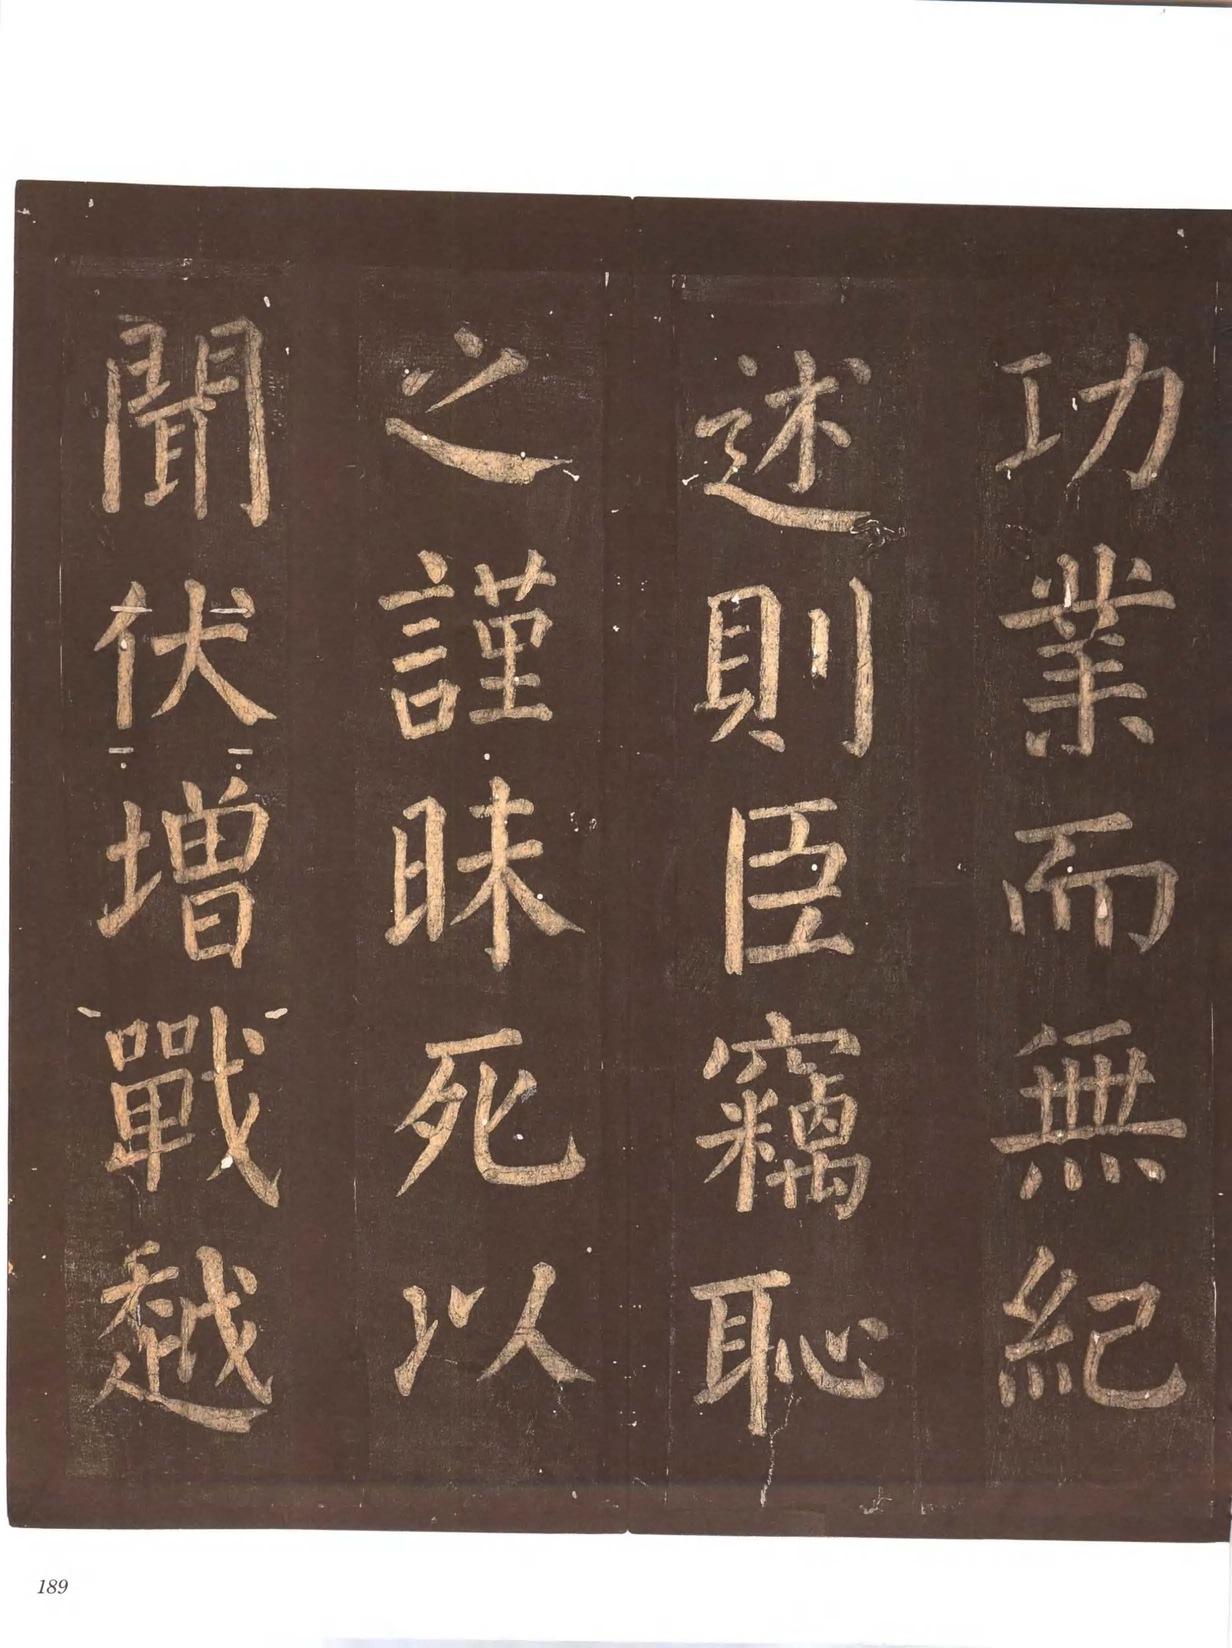 功業而無紀
述則臣竊恥
之謹昧死以
聞伏增戰越
189